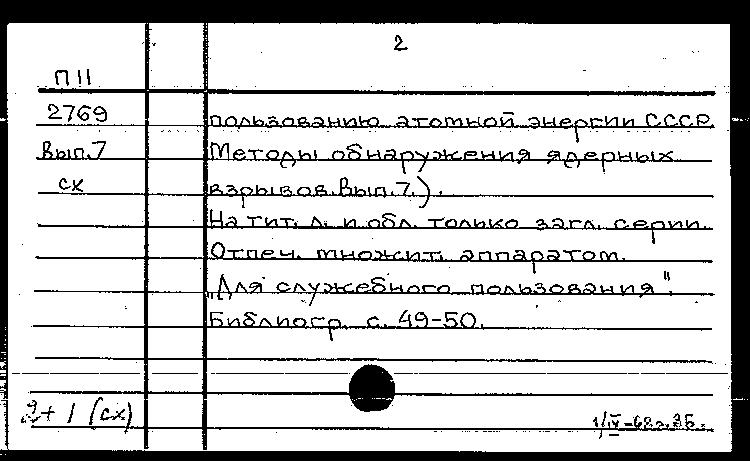 2
П II
2769
Вып.7
сх
пользованию атомной энергии СССР.
Методы обнаружения ядерных
взрывов. Вып.7.).
На тит. л. и обл. только загл. серии.
Отпеч. множит. аппаратом.
„Для служебного пользования".
Библиогр. с. 49-50.
2+1 (сх)
1/IV-68г.